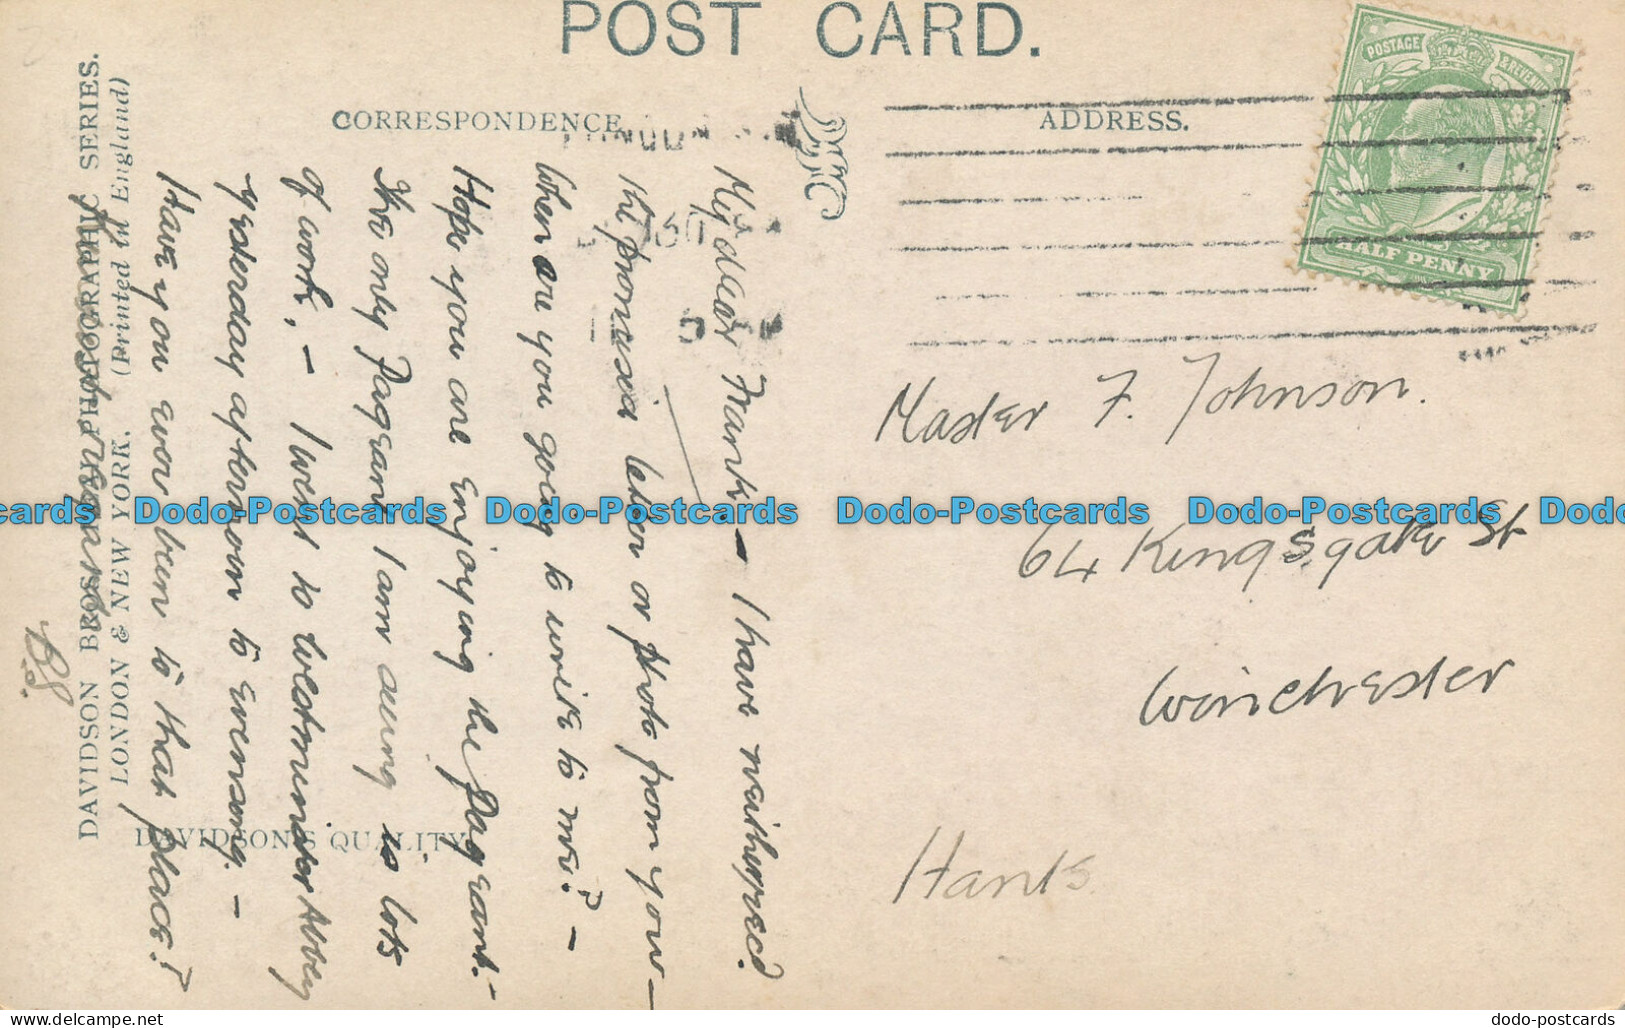 POST CARD.
CORRESPONDENCE
ADDRESS.
POSTAGE
& REVENUE
HALF PENNY
DAVIDSON BROS' REAL PHOTOGRAPHIC SERIES.
LONDON & NEW YORK. (Printed in England)
DAVIDSON'S QUALITY
My dear Frank. – I have
the promised letter or photo from you –
When are you going to write to me? –
Hope you are enjoying the Pageant. –
the only Pageant I am seeing is lots
of work, – I went to Westminster Abbey
yesterday afternoon to evensong. –
Have you ever been to that place?
B.S.
Master F. Johnson.
64 Kingsgate St
Winchester
Hants
Dodo-Postcards Dodo-Postcards Dodo-Postcards Dodo-Postcards
dodo-postcards
dodo-postcards